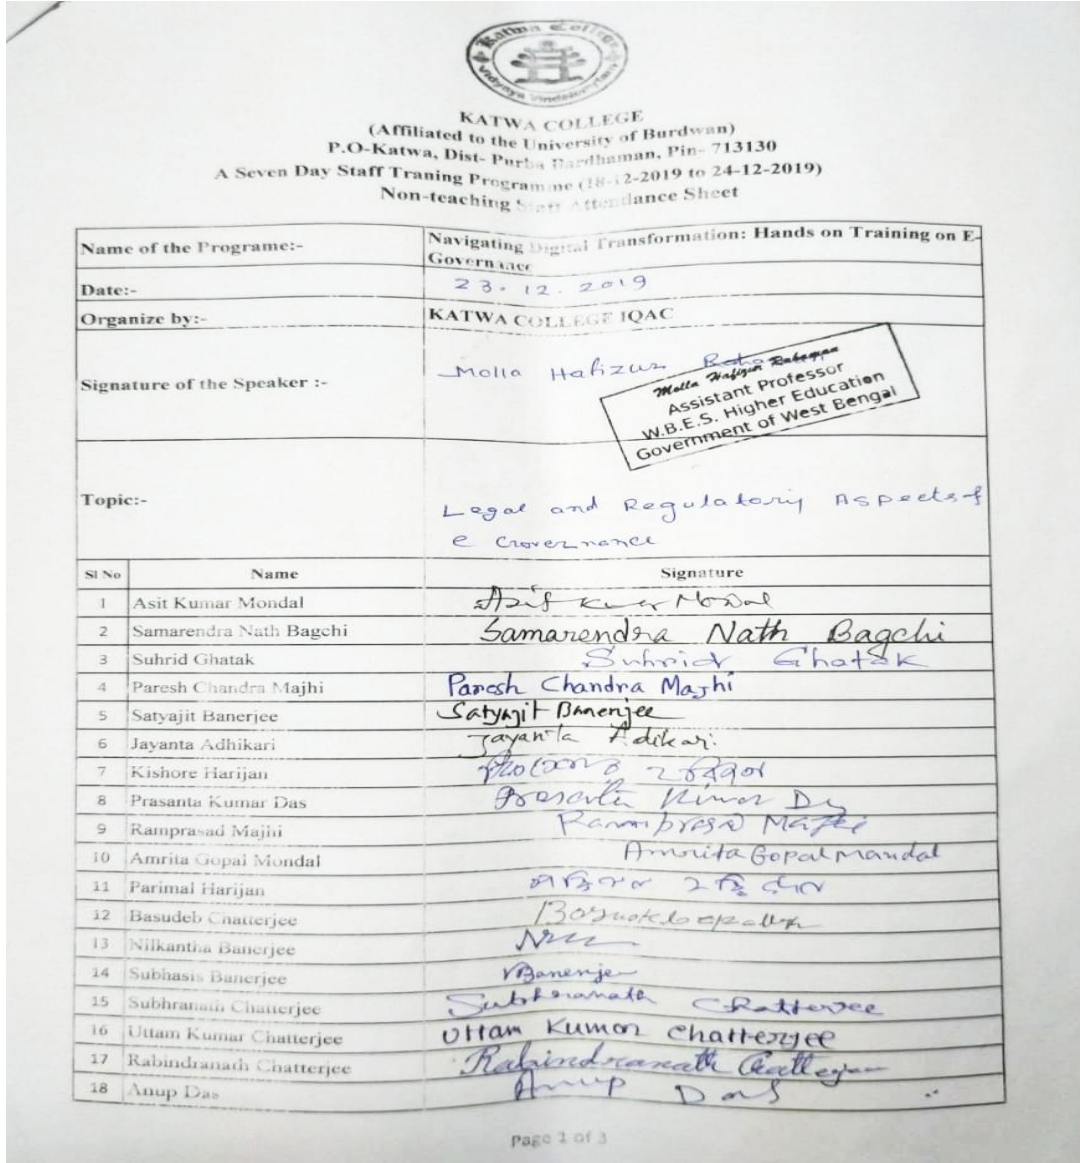 Katwa College
KATWA COLLEGE
(Affiliated to the University of Burdwan)
P.O-Katwa, Dist- Purba Bardhaman, Pin- 713130
A Seven Day Staff Traning Programme (18-12-2019 to 24-12-2019)
Non-teaching Staff Attendance Sheet
Name of the Programe:- Navigating Digital Transformation: Hands on Training on E-
Governance
Date:- 23.12.2019
Organize by:- KATWA COLLEGE IQAC
Signature of the Speaker :- Molla Hafizur
Molla Hafizur Rahaman
Assistant Professor
W.B.E.S. Higher Education
Government of West Bengal
Topic:- Legal and Regulatory Aspects of
e Governance
Sl No Name Signature
1 Asit Kumar Mondal Asit Kumar Mondal
2 Samarendra Nath Bagchi Samarendra Nath Bagchi
3 Suhrid Ghatak Suhrid Ghatak
4 Paresh Chandra Majhi Paresh Chandra Majhi
5 Satyajit Banerjee Satyajit Banerjee
6 Jayanta Adhikari Jayanta Adikari.
7 Kishore Harijan
8 Prasanta Kumar Das Prasanta Kumar
9 Ramprasad Majhi Ramprasad Majhi
10 Amrita Gopal Mondal Amrita Gopal Mandal
11 Parimal Harijan
12 Basudeb Chatterjee
13 Nilkantha Banerjee
14 Subhasis Banerjee Banerjee
15 Subhranath Chatterjee Subhranath Chatterjee
16 Uttam Kumar Chatterjee Uttam Kumar Chatterjee
17 Rabindranath Chatterjee Rabindranath Chatterjee
18 Anup Das Anup Das
Page 1 of 3